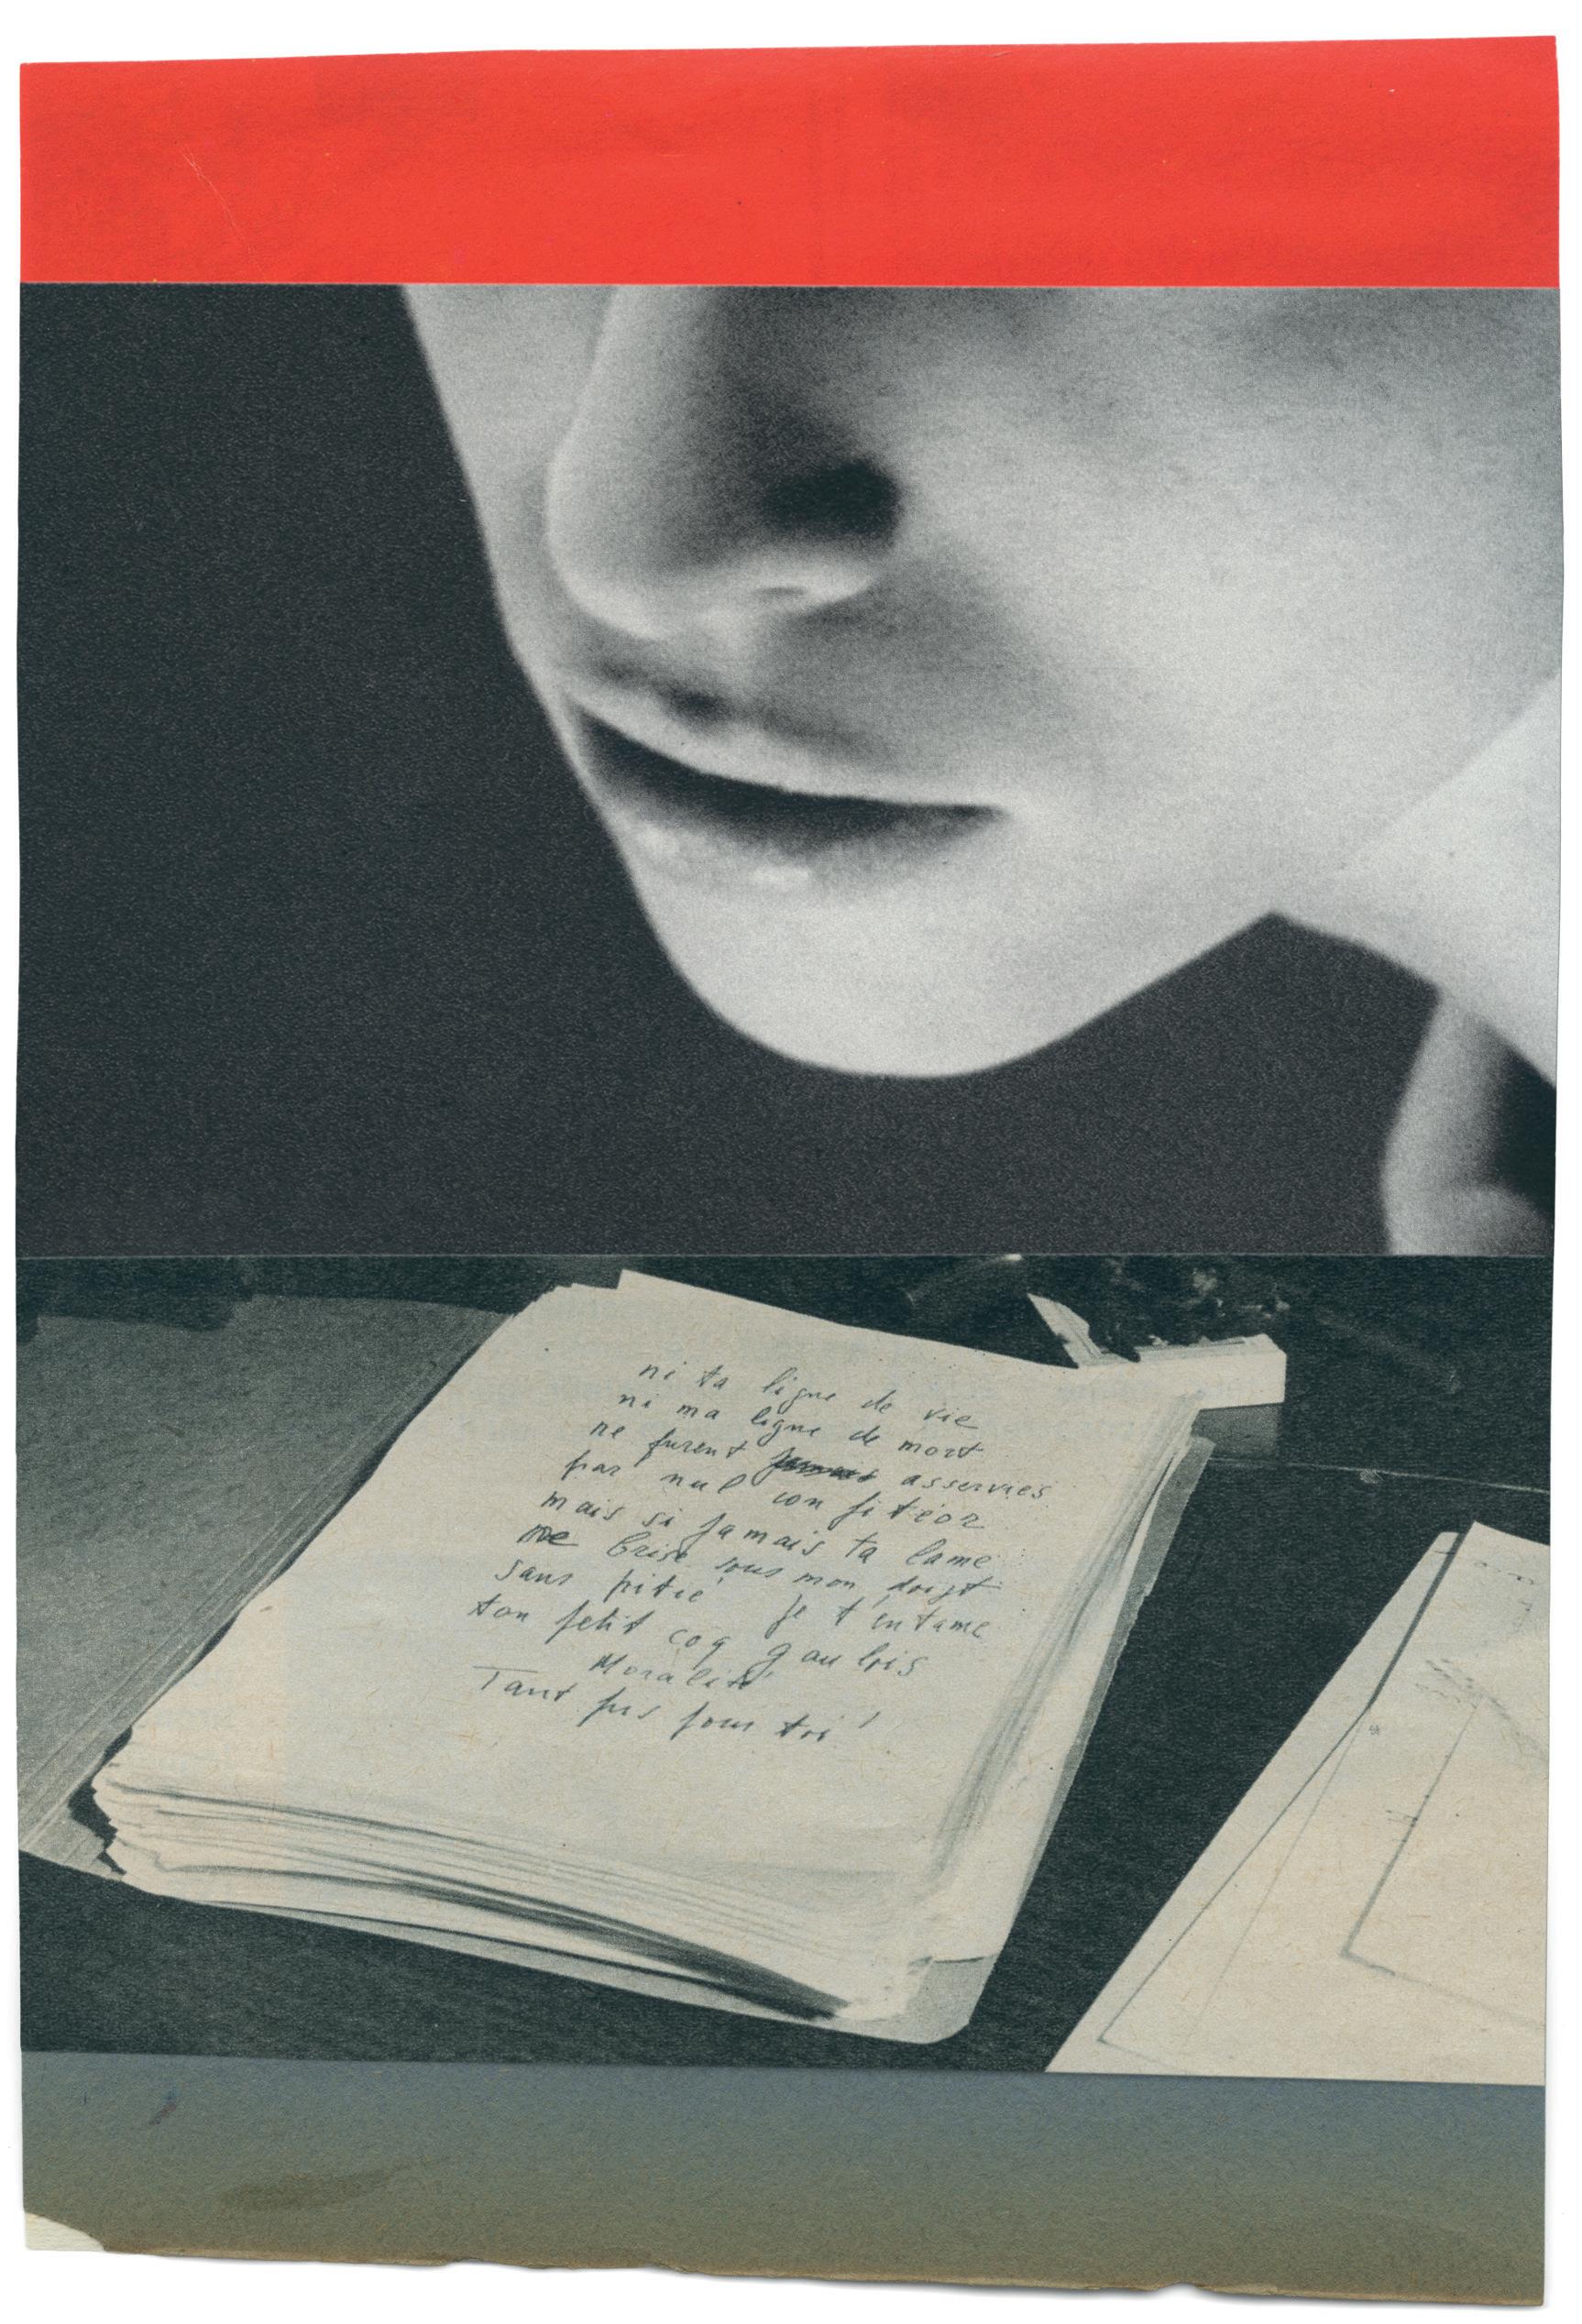 ni ta ligne de vie
ni ma ligne de mort
ne furent asservies
par nul con fitéor
mais si jamais ta lame
me brise sous mon doigt
sans pitié je t'entame
ton petit coq gaulois
Moralité
Tant pis pour toi !